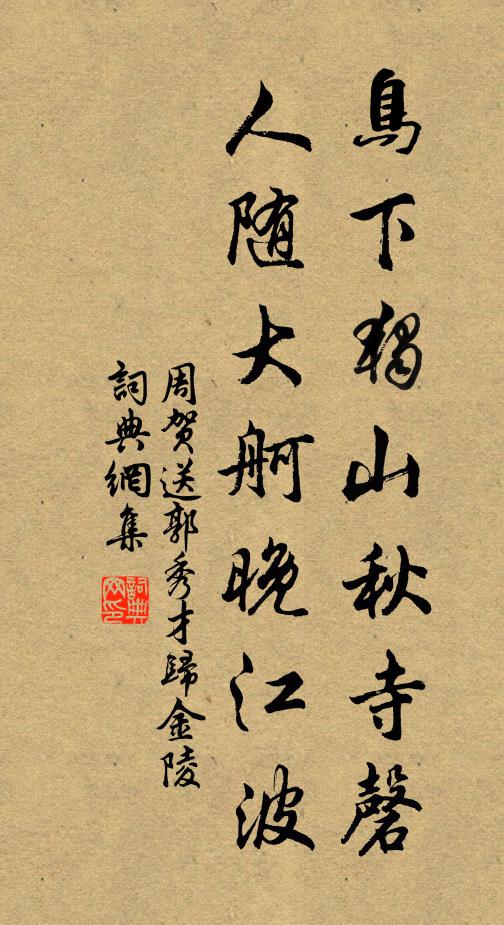 鳥下獨山秋寺磬
人随大舸晚江波
周賀送郭秀才歸金陵
詞典網集
詞典
网印